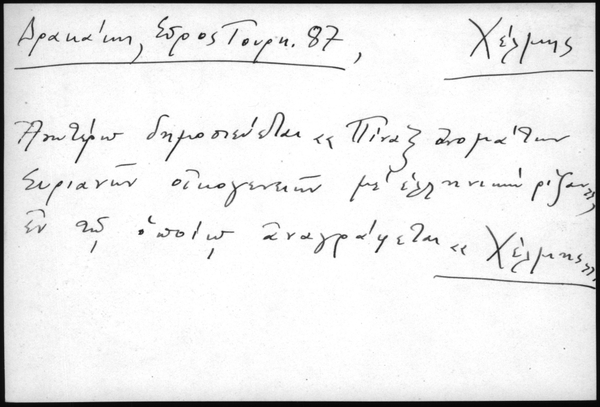 Δρακάκη, Σῦρος Τουρκ. 87, Χέλμης
Ἀνωτέρω δημοσιεύεται "Πίναξ ὀνομάτων
Συριανῶν οἰκογενειῶν μὲ ἑλληνικὴν ρίζαν",
ἐν τῷ ὁποίῳ ἀναγράφεται "Χέλμης"